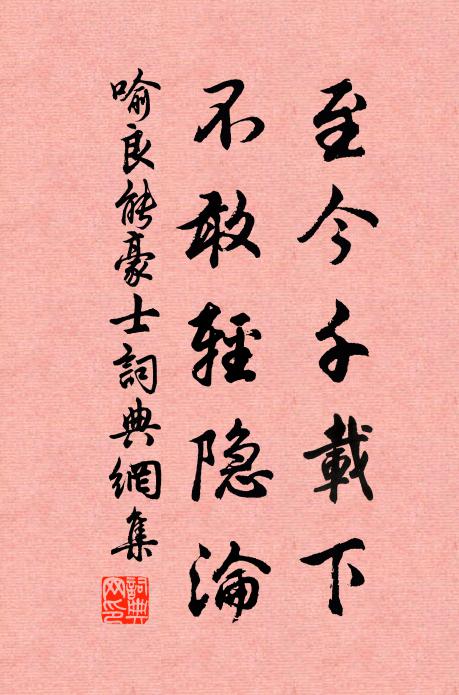 至今千載下
不敢輕隐淪
喻良能豪士詞典網集
詞典网印